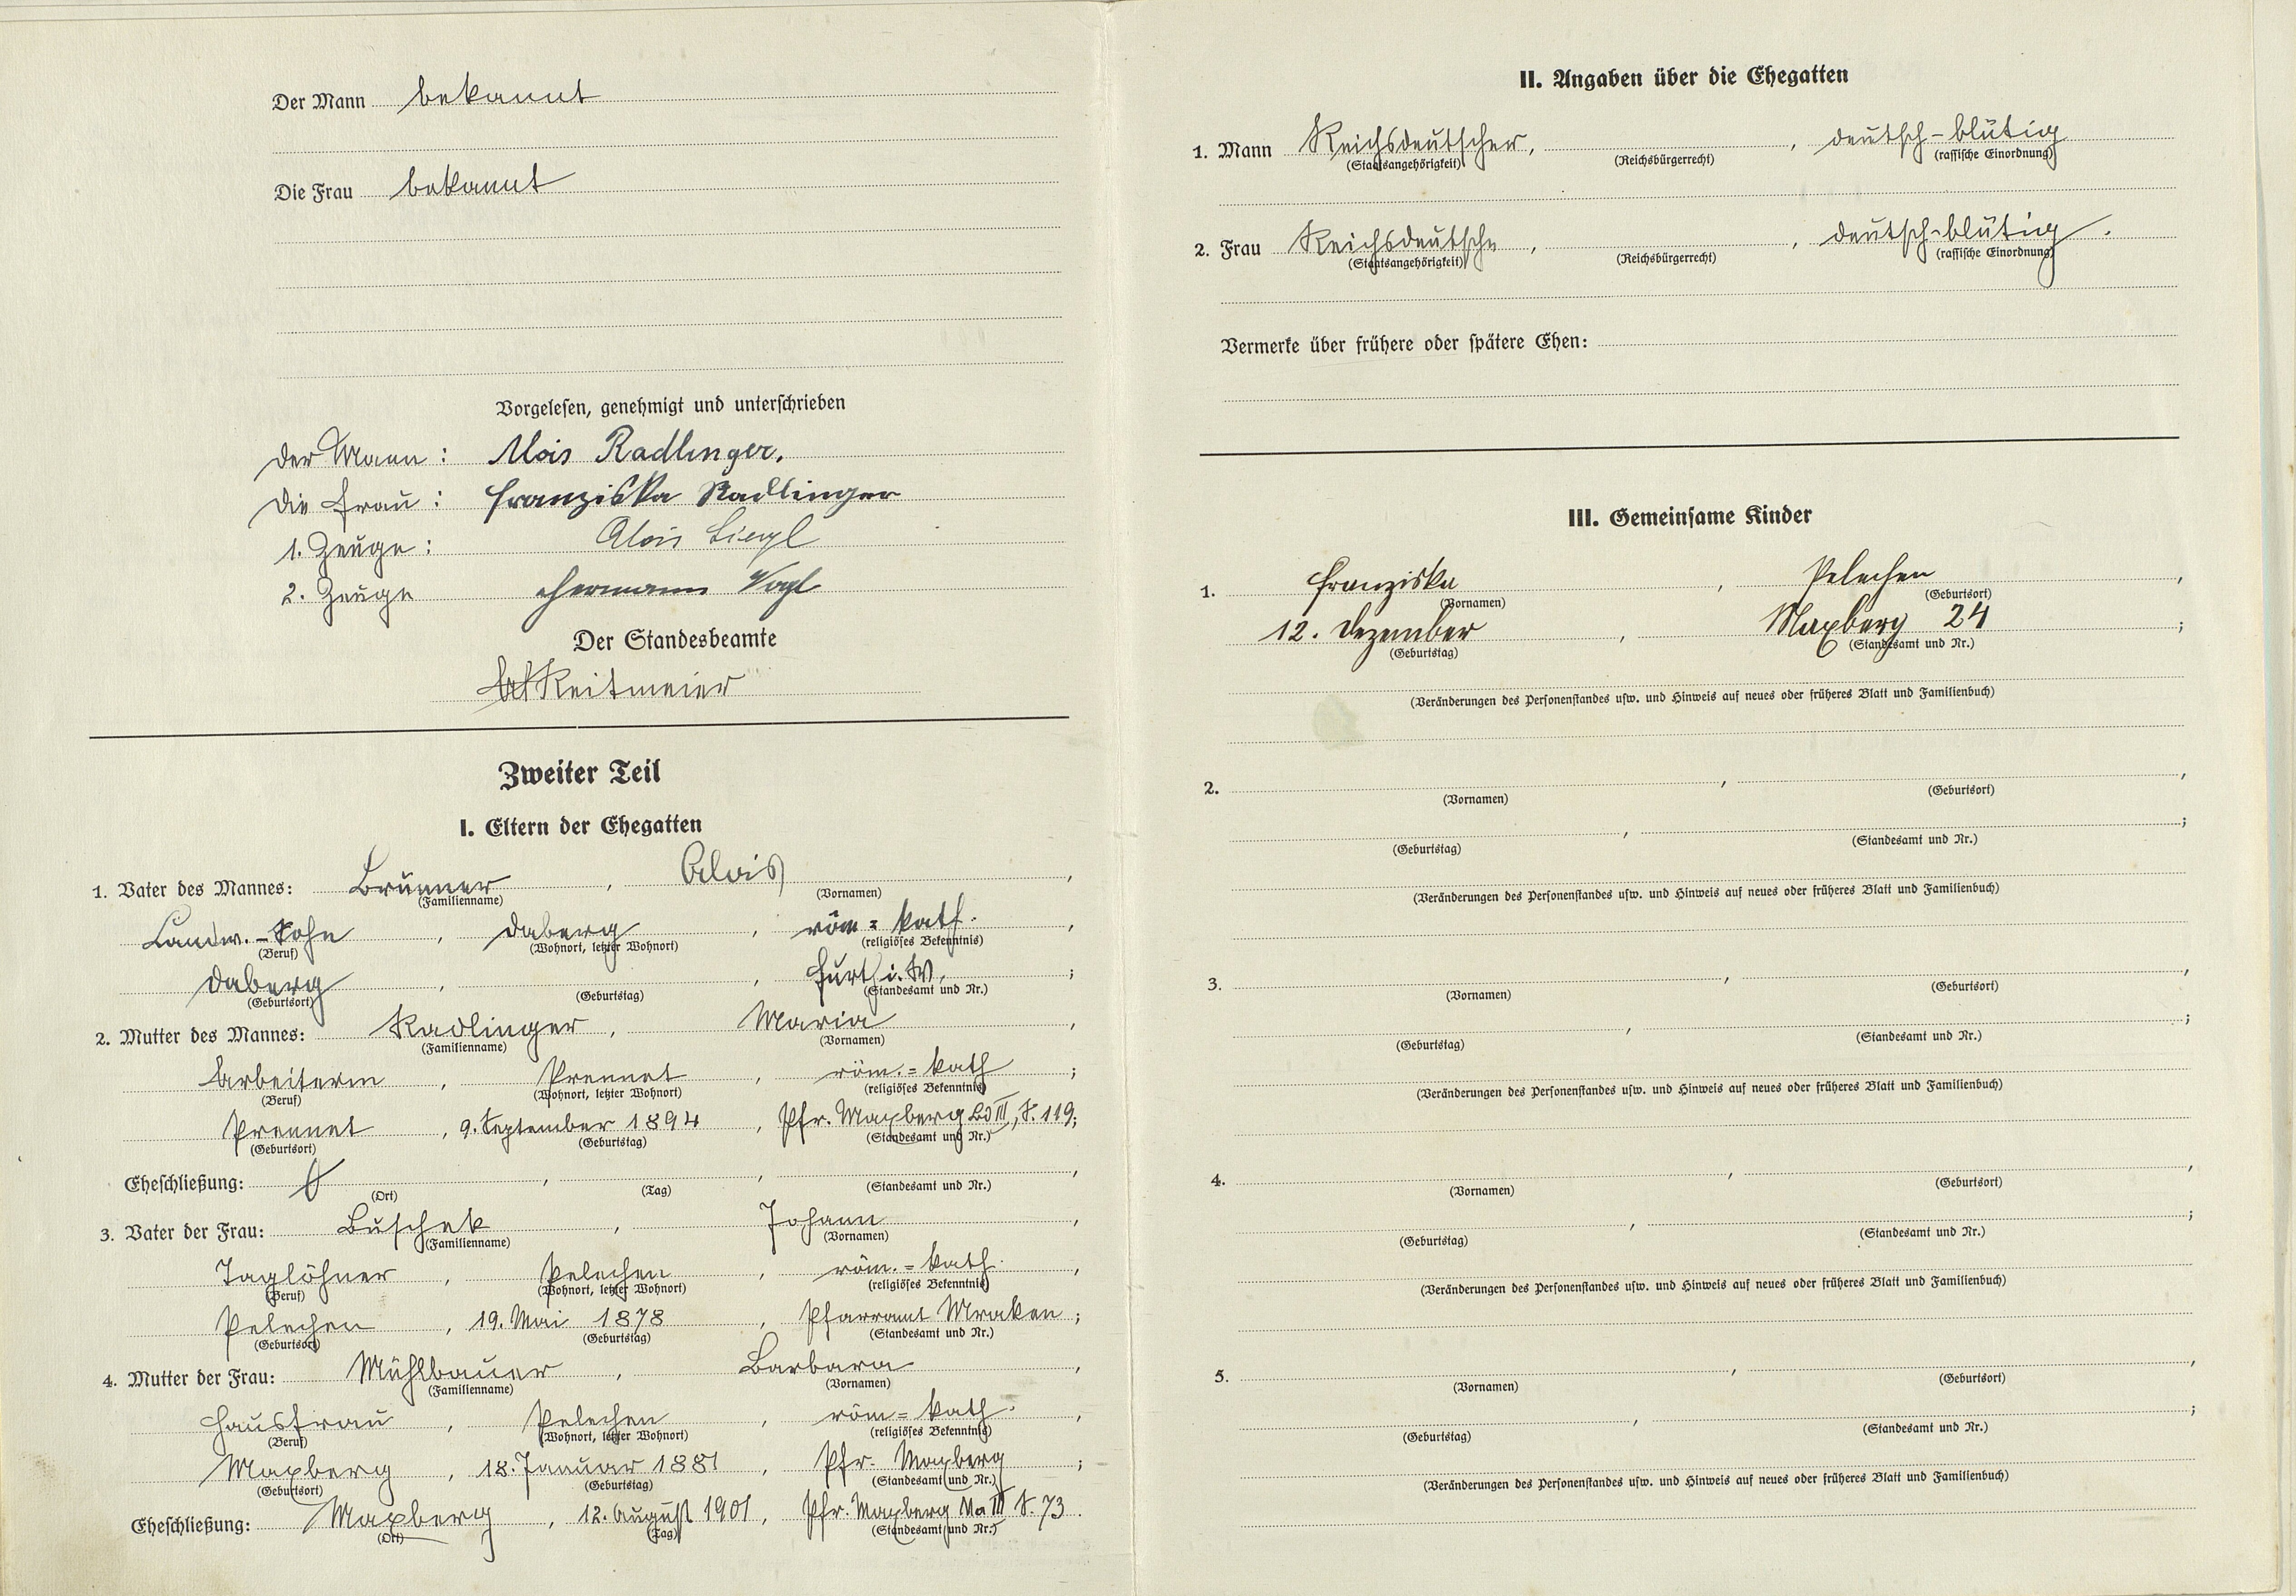 Der Mann bekannt
Die Frau bekannt
Vorgelesen, genehmigt und unterschrieben
der Mann : Alois Radlinger.
die Frau : Franziska Radlinger
1. Zeuge : Alois Liegl
2. Zeuge Hermann Vogl
Der Standesbeamte
Reitmeier
Zweiter Teil
I. Eltern der Ehegatten
1. Vater des Mannes: Brunner, Alois,
(Familienname) (Vornamen)
Landw.-Sohn, Daberg, röm.=kath.,
(Beruf) (Wohnort, letzter Wohnort) (religiöses Bekenntnis)
Daberg, , Furth i. W. ;
(Geburtsort) (Geburtstag) (Standesamt und Nr.)
2. Mutter des Mannes: Radlinger, Maria,
(Familienname) (Vornamen)
Arbeiterin, Prennet, röm.=kath ;
(Beruf) (Wohnort, letzter Wohnort) (religiöses Bekenntnis)
Prennet, 9. September 1894, Pfr. Maxberg Bd III, S. 119;
(Geburtsort) (Geburtstag) (Standesamt und Nr.)
Eheschließung: , , ,
(Ort) (Tag) (Standesamt und Nr.)
3. Vater der Frau: Buschek, Johann,
(Familienname) (Vornamen)
Taglöhner, Pelechen, röm.=kath.,
(Beruf) (Wohnort, letzter Wohnort) (religiöses Bekenntnis)
Pelechen, 19. Mai 1878, Pfarramt Mraken ;
(Geburtsort) (Geburtstag) (Standesamt und Nr.)
4. Mutter der Frau: Mühlbauer, Barbara,
(Familienname) (Vornamen)
Hausfrau, Pelechen, röm=kath.,
(Beruf) (Wohnort, letzter Wohnort) (religiöses Bekenntnis)
Maxberg, 18. Januar 1881, Pfr. Maxberg ;
(Geburtsort) (Geburtstag) (Standesamt und Nr.)
Eheschließung: Maxberg, 12. August 1901, Pfr. Maxberg III S. 73.
(Ort) (Tag) (Standesamt und Nr.)
II. Angaben über die Ehegatten
1. Mann Reichsdeutscher, , deutsch-blütig
(Staatsangehörigkeit) (Reichsbürgerrecht) (rassische Einordnung)
2. Frau Reichsdeutsche, , deutsch-blütig.
(Staatsangehörigkeit) (Reichsbürgerrecht) (rassische Einordnung)
Vermerke über frühere oder spätere Ehen:
III. Gemeinsame Kinder
1. Franziska, Pelechen,
(Vornamen) (Geburtsort)
12. Dezember, Maxberg 24 ;
(Geburtstag) (Standesamt und Nr.)
(Veränderungen des Personenstandes usw. und Hinweis auf neues oder früheres Blatt und Familienbuch)
2. , ,
(Vornamen) (Geburtsort)
, ;
(Geburtstag) (Standesamt und Nr.)
(Veränderungen des Personenstandes usw. und Hinweis auf neues oder früheres Blatt und Familienbuch)
3. , ,
(Vornamen) (Geburtsort)
, ;
(Geburtstag) (Standesamt und Nr.)
(Veränderungen des Personenstandes usw. und Hinweis auf neues oder früheres Blatt und Familienbuch)
4. , ,
(Vornamen) (Geburtsort)
, ;
(Geburtstag) (Standesamt und Nr.)
(Veränderungen des Personenstandes usw. und Hinweis auf neues oder früheres Blatt und Familienbuch)
5. , ,
(Vornamen) (Geburtsort)
, ;
(Geburtstag) (Standesamt und Nr.)
(Veränderungen des Personenstandes usw. und Hinweis auf neues oder früheres Blatt und Familienbuch)